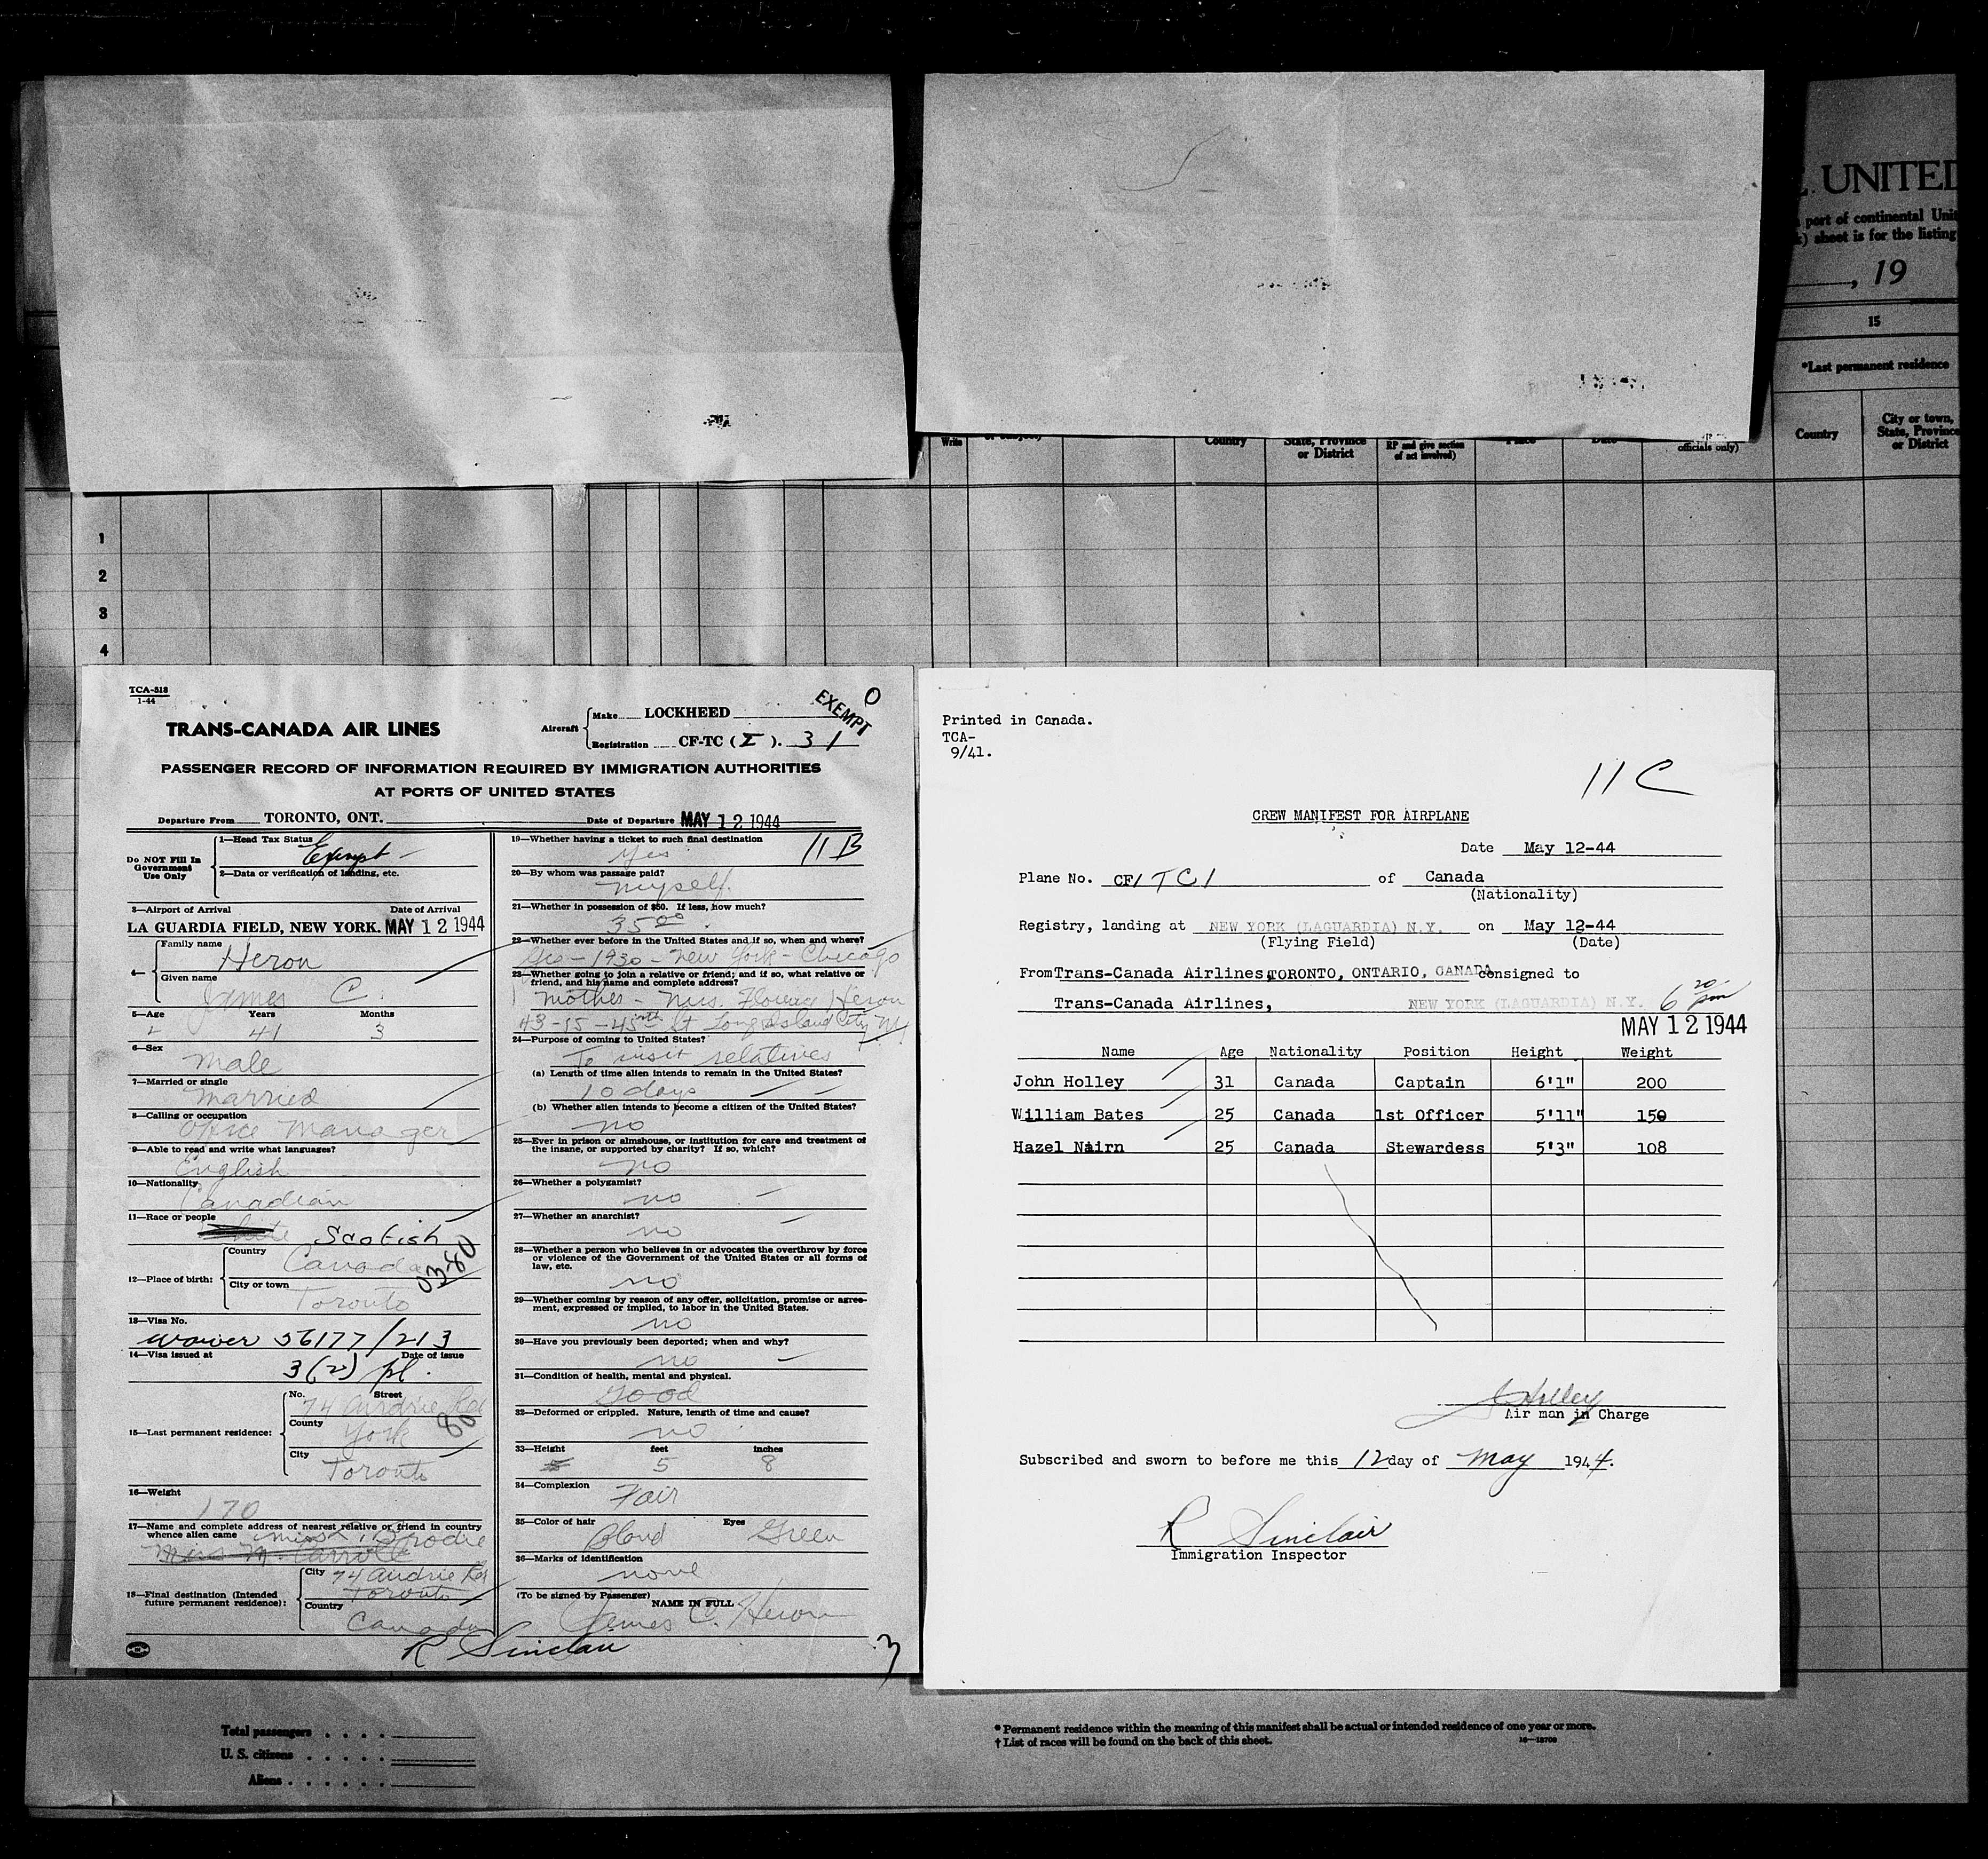 E. UNITED
port of continental Uni
sheet is for the listing
, 19
15
*Last permanent residence
Write
Country
State, Province
or District
RP and give section
of act involved)
Place
Date
officials only)
Country
City or town,
State, Province
or District
1
2
3
4
TCA-518
1-44
TRANS-CANADA AIR LINES
Aircraft
Make LOCKHEED
Registration CF-TC (I). 31
EXEMPT
0
PASSENGER RECORD OF INFORMATION REQUIRED BY IMMIGRATION AUTHORITIES
AT PORTS OF UNITED STATES
Departure From TORONTO, ONT. Date of Departure MAY 12 1944
Do NOT Fill In
Government
Use Only
1—Head Tax Status
Exempt -
2—Data or verification of landing, etc.
3—Airport of Arrival Date of Arrival
LA GUARDIA FIELD, NEW YORK. MAY 12 1944
4— Family name
Heron
Given name
James C.
5—Age Years Months
41 3
6—Sex
Male
7—Married or single
Married
8—Calling or occupation
Office Manager
9—Able to read and write what languages?
English
10—Nationality
Canadian
11—Race or people
White Scotish
12—Place of birth:
Country
Canada
City or town
Toronto
03-80
13—Visa No.
waiver 56177/213
14—Visa issued at Date of issue
3(2) pl.
15—Last permanent residence:
No. Street
74 Airdrie Rd
County
York
80
City
Toronto
16—Weight
170
17—Name and complete address of nearest relative or friend in country
whence alien came Miss Brodie
Miss M. Carroll
18—Final destination (Intended
future permanent residence):
City 74 Airdrie Rd
Toronto
Country
Canada
R Sinclair
19—Whether having a ticket to such final destination
Yes
11 B
20—By whom was passage paid?
myself.
21—Whether in possession of $50. If less, how much?
35.00
22—Whether ever before in the United States and if so, when and where?
Yes - 1930 - New York - Chicago
23—Whether going to join a relative or friend; and if so, what relative or
friend, and his name and complete address?
Mother - Mrs. Heron
43-15-45th St Long Island City N.Y
24—Purpose of coming to United States?
To visit relatives
(a) Length of time alien intends to remain in the United States?
10 days
(b) Whether alien intends to become a citizen of the United States?
no
25—Ever in prison or almshouse, or institution for care and treatment of
the insane, or supported by charity? If so, which?
no
26—Whether a polygamist?
no
27—Whether an anarchist?
no
28—Whether a person who believes in or advocates the overthrow by force
or violence of the Government of the United States or all forms of
law, etc.
no
29—Whether coming by reason of any offer, solicitation, promise or agree-
ment, expressed or implied, to labor in the United States.
no
30—Have you previously been deported; when and why?
no
31—Condition of health, mental and physical.
Good
32—Deformed or crippled. Nature, length of time and cause?
no
33—Height feet inches
5 8
34—Complexion
Fair
35—Color of hair Eyes
Blond Green
36—Marks of identification
none
(To be signed by Passenger) NAME IN FULL
James C. Heron
3
Printed in Canada.
TCA-
9/41.
11 C
CREW MANIFEST FOR AIRPLANE
Date May 12-44
Plane No. CF/TCI of Canada
(Nationality)
Registry, landing at NEW YORK (LAGUARDIA) N.Y. on May 12-44
(Flying Field) (Date)
From Trans-Canada Airlines, TORONTO, ONTARIO, CANADA consigned to
Trans-Canada Airlines, NEW YORK (LAGUARDIA) N.Y. 6 20 pm
MAY 12 1944
Name Age Nationality Position Height Weight
John Holley 31 Canada Captain 6'1" 200
William Bates 25 Canada 1st Officer 5'11" 150
Hazel Nairn 25 Canada Stewardess 5'3" 108
J Holley
Air man in Charge
Subscribed and sworn to before me this 12 day of May 1944.
R Sinclair
Immigration Inspector
Total passengers . . . .
U. S. citizens . . . . .
Aliens . . . . . .
* Permanent residence within the meaning of this manifest shall be actual or intended residence of one year or more.
† List of races will be found on the back of this sheet.